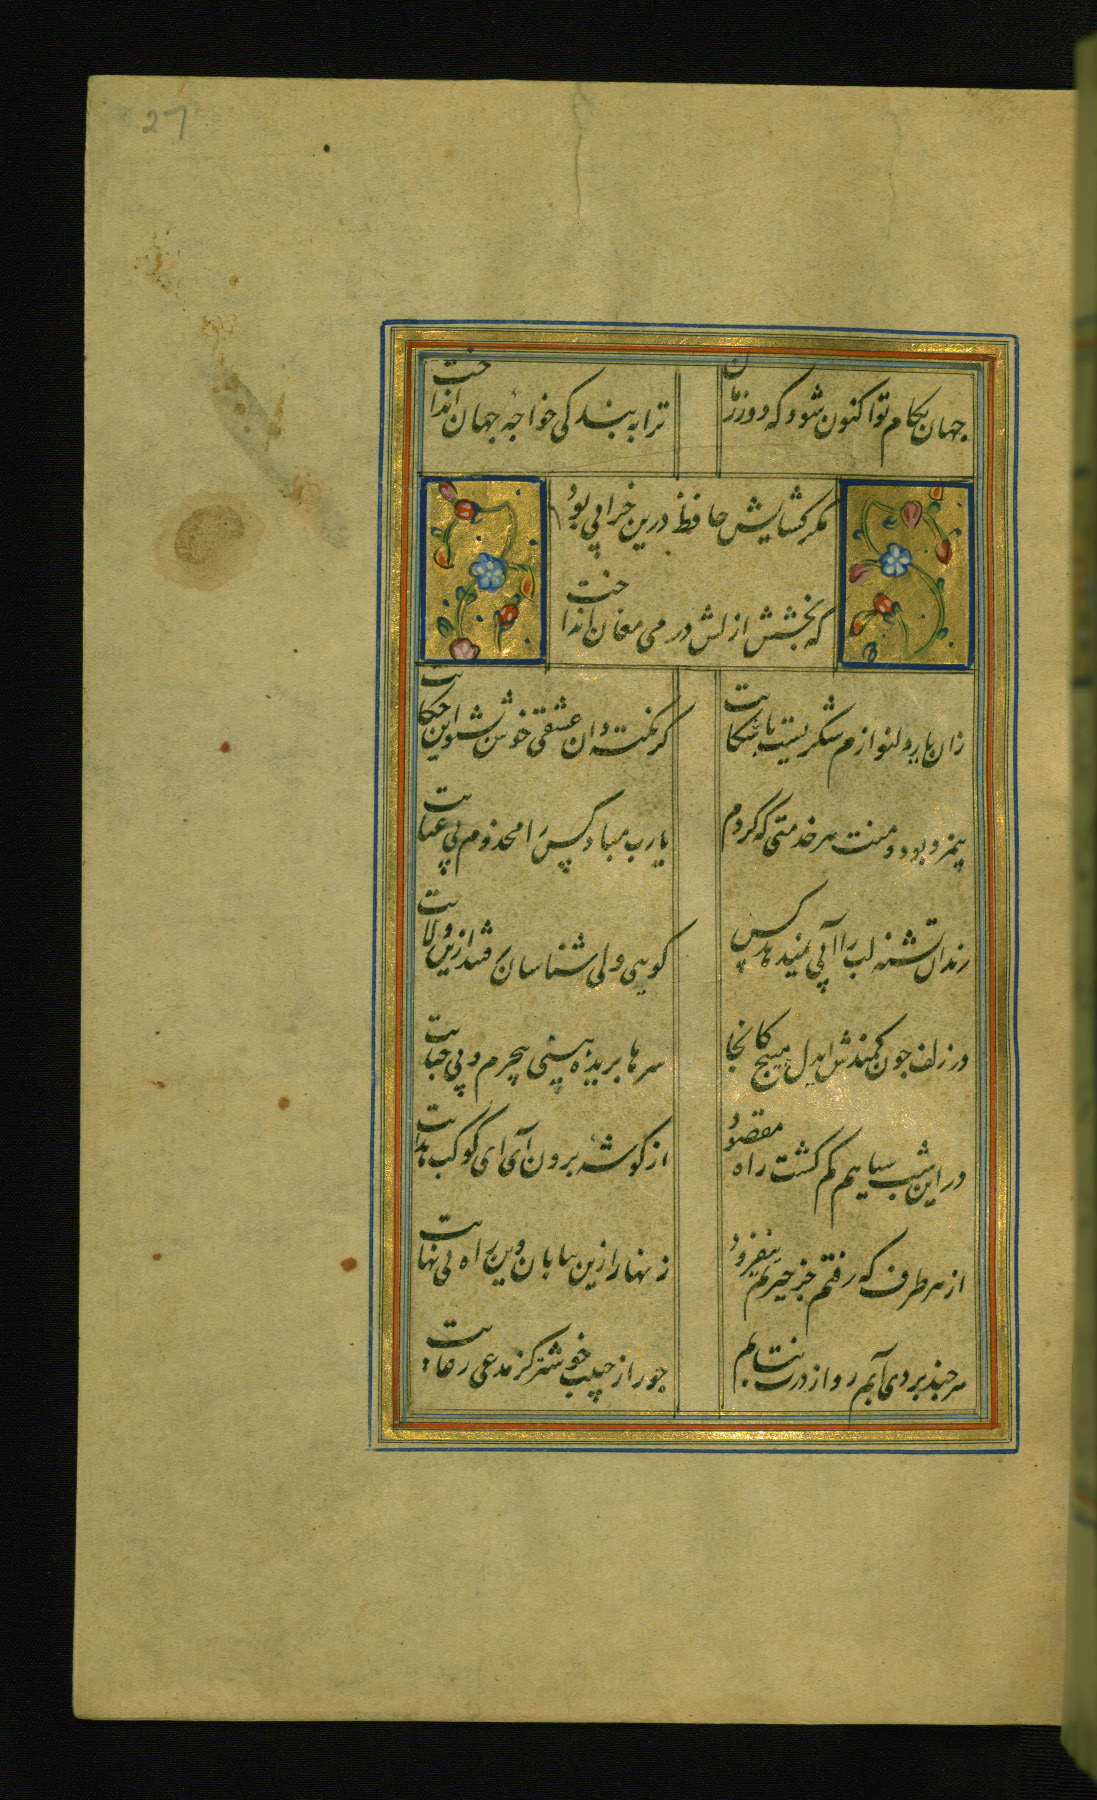 27
جهان بکام تو اکنون شود که دور زمان
ترا به بندکی خواجه جهان انداخت
مکر کشایش حافظ درین خرابی بود
که بخشش ازلش در می مغان انداخت
زان یار دلنوازم شکریست با شکایت
کر نکته دان عشقی خوش بشنو این حکایت
بیمزد بود و منت هر خدمتی که کردم
یارب مباد کس را مخدوم بی عنایت
رندان تشنه لب را آبی نمیدهد کس
کویی ولی شناسان رفتند ازین ولایت
در زلف چون کمندش ایدل مپیچ کانجا
سرها بریده بینی بیجرم و بی جنایت
در این شب سیاهم کم کشت راه مقصود
از کوشه برون آی ای کوکب هدایت
از هر طرف که رفتم جز حیرتم نیفزود
زنهار ازین بیابان وین راه بی نهایت
هر چند بردی آبم رو از درت نتابم
جور از حبیب خوشتر کز مدعی رعایت